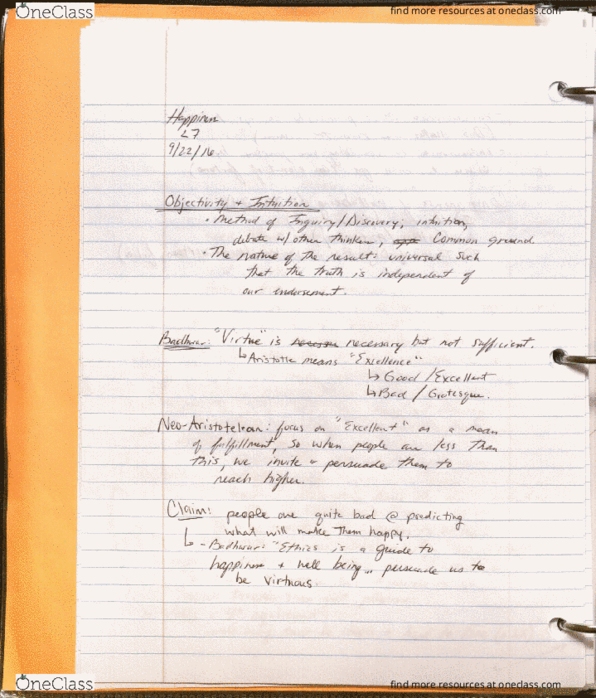 OneClass
find more resources at oneclass.com
Happiness
L7
9/22/16
Objectivity + Intuition
• Method of Inquiry/Discovery; intuition,
debate w/ other thinkers, Common ground.
• The nature of the result: universal such
that the truth is independent of
our endorsement.
Badhwar: "Virtue" is necessary but not sufficient.
↳ Aristotle means "Excellence"
↳ Good / Excellent
↳ Bad / Grotesque.
Neo-Aristotelean: focus on "Excellent" as a mean
of fulfillment, so when people are less than
this, we invite + persuade them to
reach higher.
Claim: people are quite bad @ predicting
what will make them happy.
↳ - Badhwar: "Ethics is a guide to
happiness + well being.. persuade us to
be virtuous.
OneClass
find more resources at oneclass.com